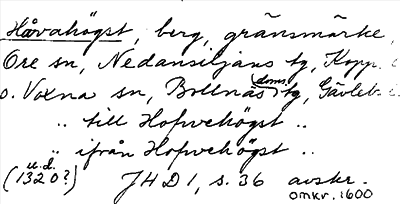 Håvahögst, berg, gränsmärke,
Ore sn, Nedansiljans tg, Kopp.
o. Voxna sn, Bollnäs doms tg, Gävleb.
„ till Hofwehögst „
„ ifrån Hofwehögst „
(u.d. 1320?) JHD 1, s. 36 avskr.
omkr. 1600